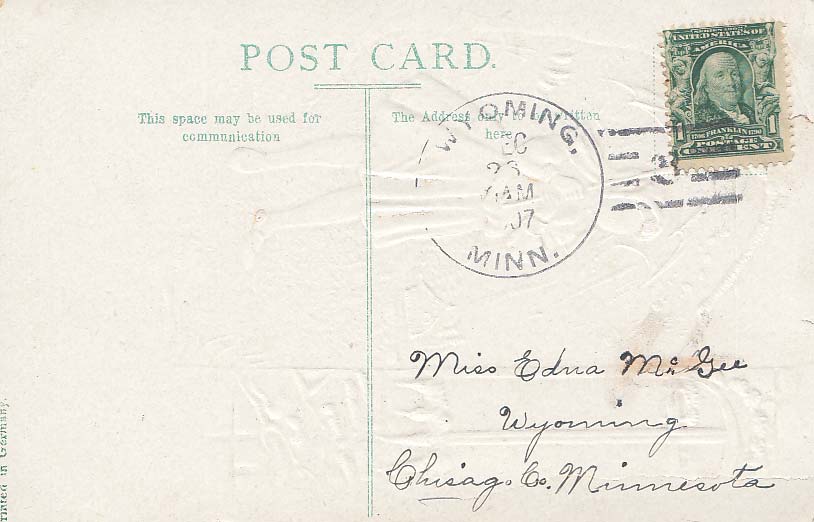 POST CARD.
This space may be used for
communication
The Address only to be written
here
WYOMING,
23
AM
07
MINN.
UNITED STATES OF
AMERICA
1 1
1706 FRANKLIN 1790
POSTAGE
ONE CENT
Miss Edna McGee
Wyoming
Chisag. Co. Minnesota
Printed in Germany.